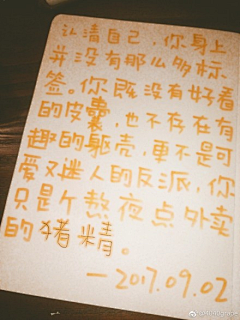 认清自己，你身上
并没有那么多标
签。你既没有好看
的皮囊，也不存在有
趣的躯壳，更不是可
爱又迷人的反派，你
只是个熬夜点外卖
的猪精。
—2017.09.02